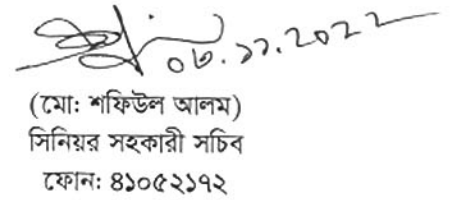 ০৩.১১.2022
(মো: শফিউল আলম)
সিনিয়র সহকারী সচিব
ফোন: ৪১০৫২১৭২